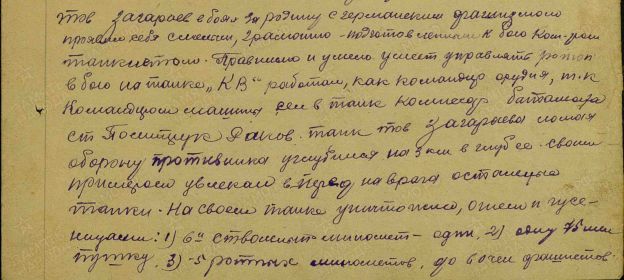 тов Загараев в боях за родину с германским фашизмом
проявил себя смелым, грамотно-подготовленным к бою Ком-ром
танкистом. Правильно и умело умеет управлять ротой
в бою на танке "КВ" работал, как командир орудия, т.к
Командиром машины сел в танк комиссар батальона
ст Политрук Раков. танк тов Загараева ломая
оборону противника углубился на 3 км в глубь ее. своим
примером увлекал вперед на врага остальные
танки. На своем танке уничтожил, огнем и гусе-
ницами: 1) 6и ствольный миномет - один, 2) одну 75 мм
пушку. 3) -5 ротных минометов, до фашистов.